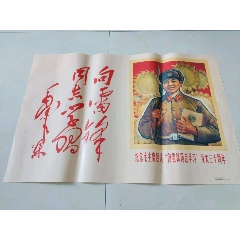 向雷锋
同志学习
毛泽东
纪念毛主席题词“向雷锋同志学习”发表三十周年